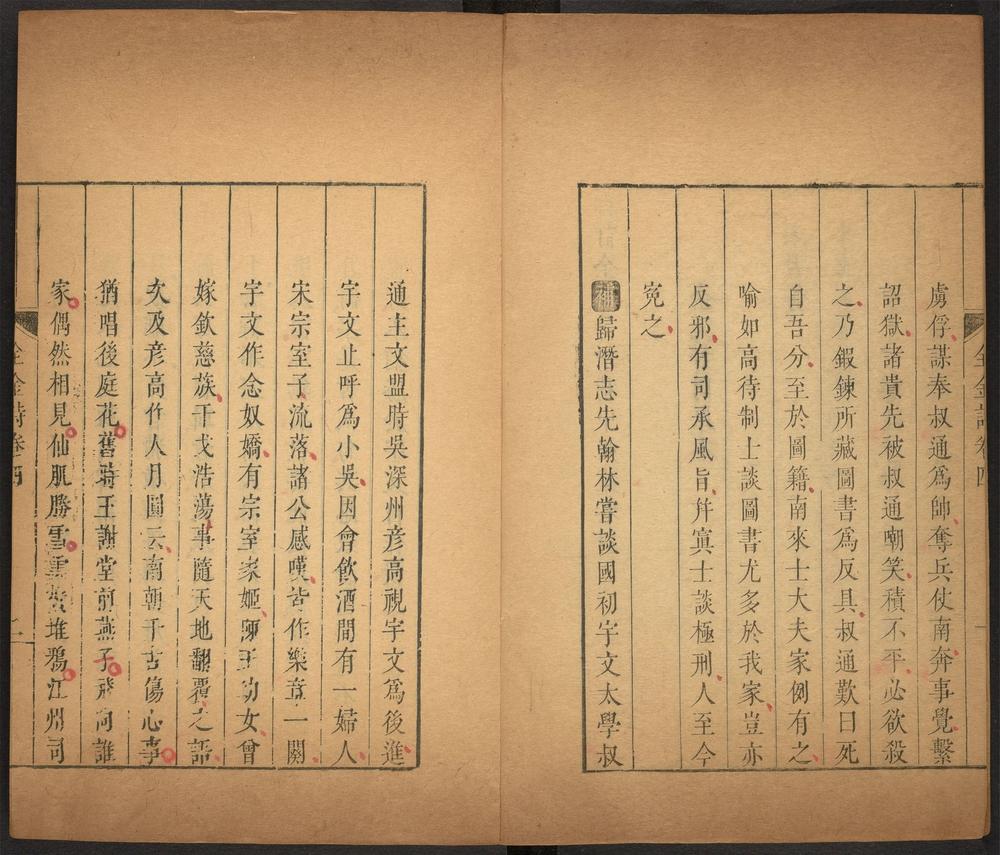 全金詩卷四
虜俘謀奉叔通爲帥奪兵仗南奔事覺繫
詔獄諸貴先被叔通嘲笑積不平必欲殺
之乃鍛鍊所藏圖書爲反具叔通歎曰死
自吾分至於圖籍南來士大夫家例有之
喻如高待制士談圖書尤多於我家豈亦
反邪有司承風旨幷寘士談極刑人至今
寃之
補歸潛志先翰林嘗談國初宇文太學叔
通主文盟時吳深州彥高視宇文爲後進
宇文止呼爲小吳因會飲酒間有一婦人
宋宗室子流落諸公感嘆皆作樂章一闋
宇文作念奴嬌有宗室家姬陳王幼女曾
嫁欽慈族干戈浩蕩事隨天地翻覆之語
次及彥高作人月圓云南朝千古傷心事
猶唱後庭花舊時王謝堂前燕子飛向誰
家偶然相見仙肌勝雪雲鬢堆鴉江州司
全金詩卷四